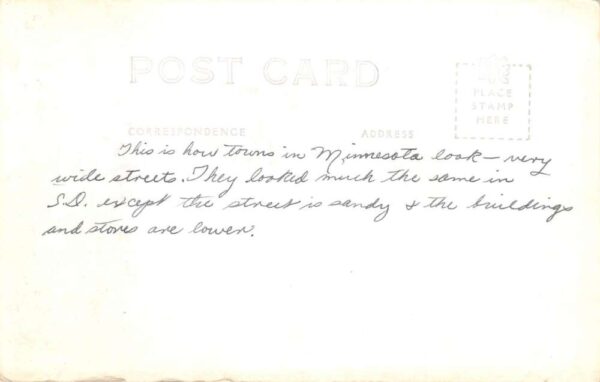 POST CARD
PLACE
STAMP
HERE
CORRESPONDENCE ADDRESS
This is how towns in Minnesota look — very
wide streets. They looked much the same in
S.D. except the street is sandy & the buildings
and stores are lower.